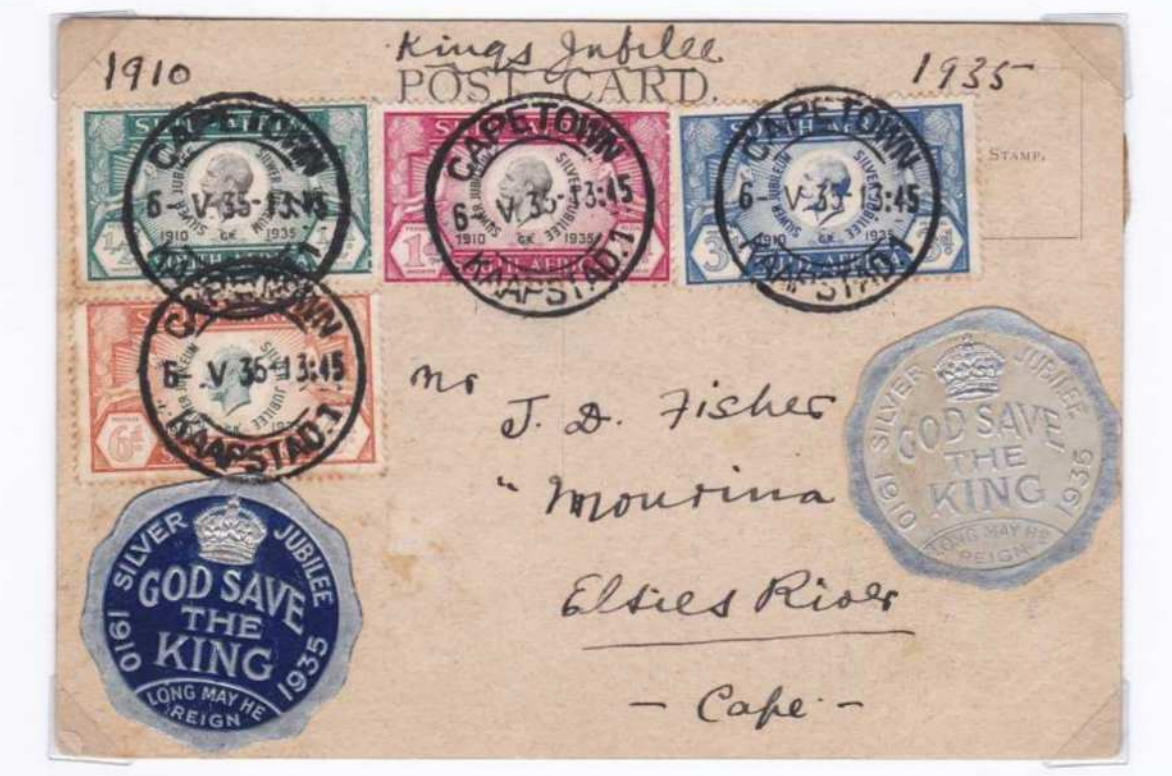 Kings Jubilee
1910
1935
POST CARD.
STAMP.
CAPETOWN
6- V 35-13:45
KAAPSTAD.1
SILVER JUBILEUM
SILVER JUBILEE
1910 GK 1935
½
SOUTH AFRICA
CAPETOWN
6- V 35-13:45
KAAPSTAD.1
SILWER JUBILEUM
SILVER JUBILEE
1910 GK 1935
1
SOUTH AFRICA
SOUTH AFRICA
CAPETOWN
6- V 35-13:45
KAAPSTAD.1
SILWER JUBILEUM
SILVER JUBILEE
1910 GK 1935
3
CAPETOWN
6- V 35-13:45
KAAPSTAD.1
SILVER JUBILEE
6
Mr
J. D. Fisher
"Mourina
Elsies River
- Cape -
SILVER JUBILEE
1910 1935
GOD SAVE
THE
KING
LONG MAY HE
REIGN
SILVER JUBILEE
1910 1935
GOD SAVE
THE
KING
LONG MAY HE
REIGN